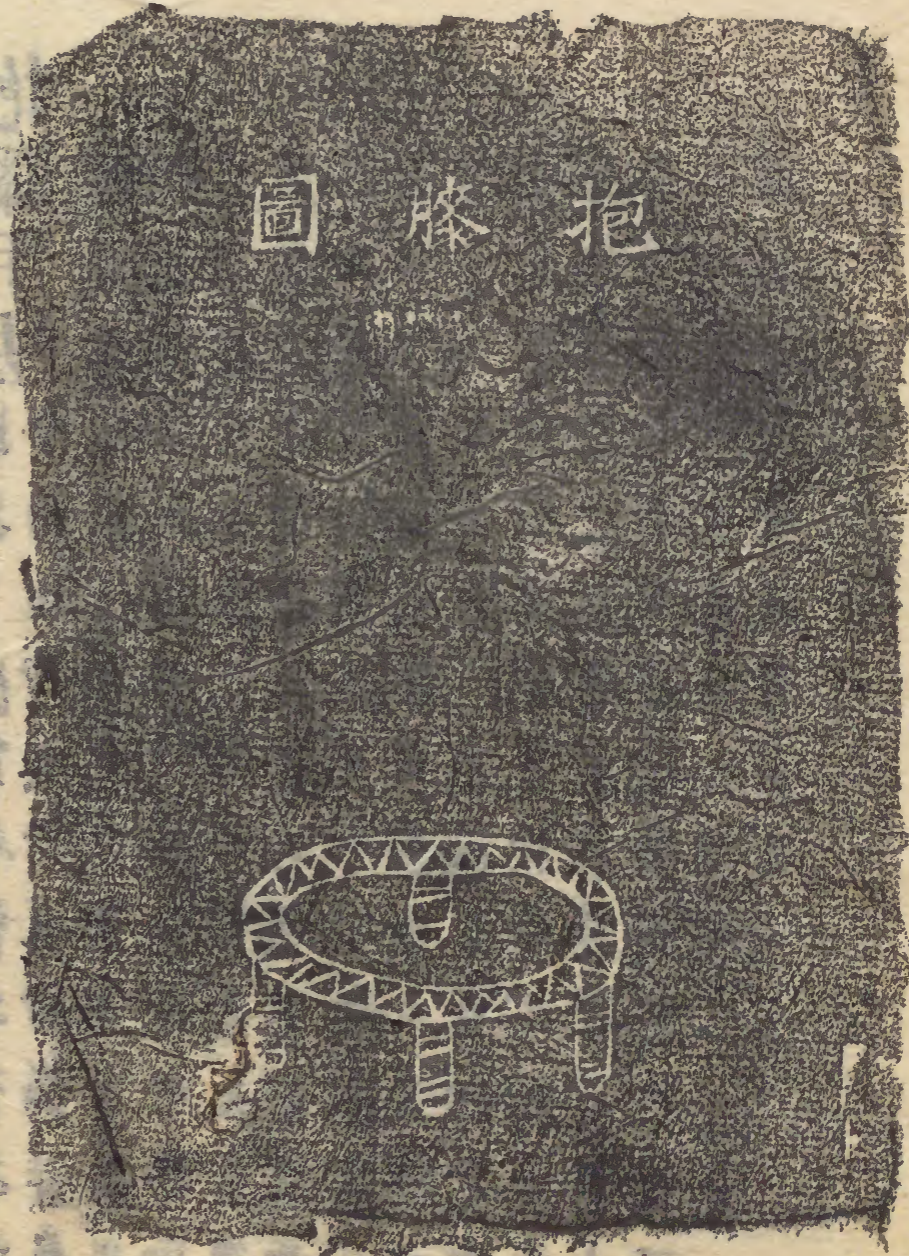 抱膝圖